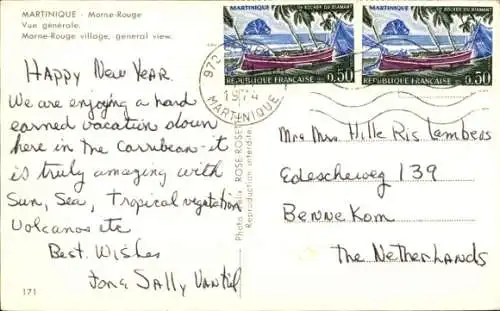 MARTINIQUE - Morne-Rouge
Vue générale.
Morne-Rouge village, general view.
HAPPY NEW YEAR
We are enjoying a hard
earned vacation down
here in the Carribean - it
is truly amazing with
Sun, Sea, Tropical vegetation
Volcanos etc
Best Wishes
Sally
171
Photo Felix ROSE-ROSETTE
Reproduction interdite
MARTINIQUE LE ROCHER DU DIAMANT
REPUBLIQUE FRANÇAISE 0,50
MARTINIQUE LE ROCHER DU DIAMANT
REPUBLIQUE FRANÇAISE 0,50
972
1974
MARTINIQUE
Mrs Hille Ris Lambers
Edescheweg 139
BenneKom
The NetherLands